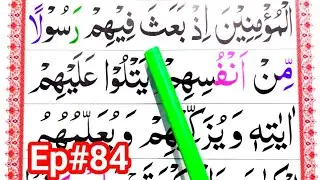 الْمُؤْمِنِيْنَ اِذْ بَعَثَ فِيْهِمْ رَسُوْلًا
مِّنْ اَنْفُسِهِمْ يَتْلُوْا عَلَيْهِمْ
اٰيٰتِهٖ وَيُزَكِّيْهِمْ وَيُعَلِّمُهُمُ
Ep#84